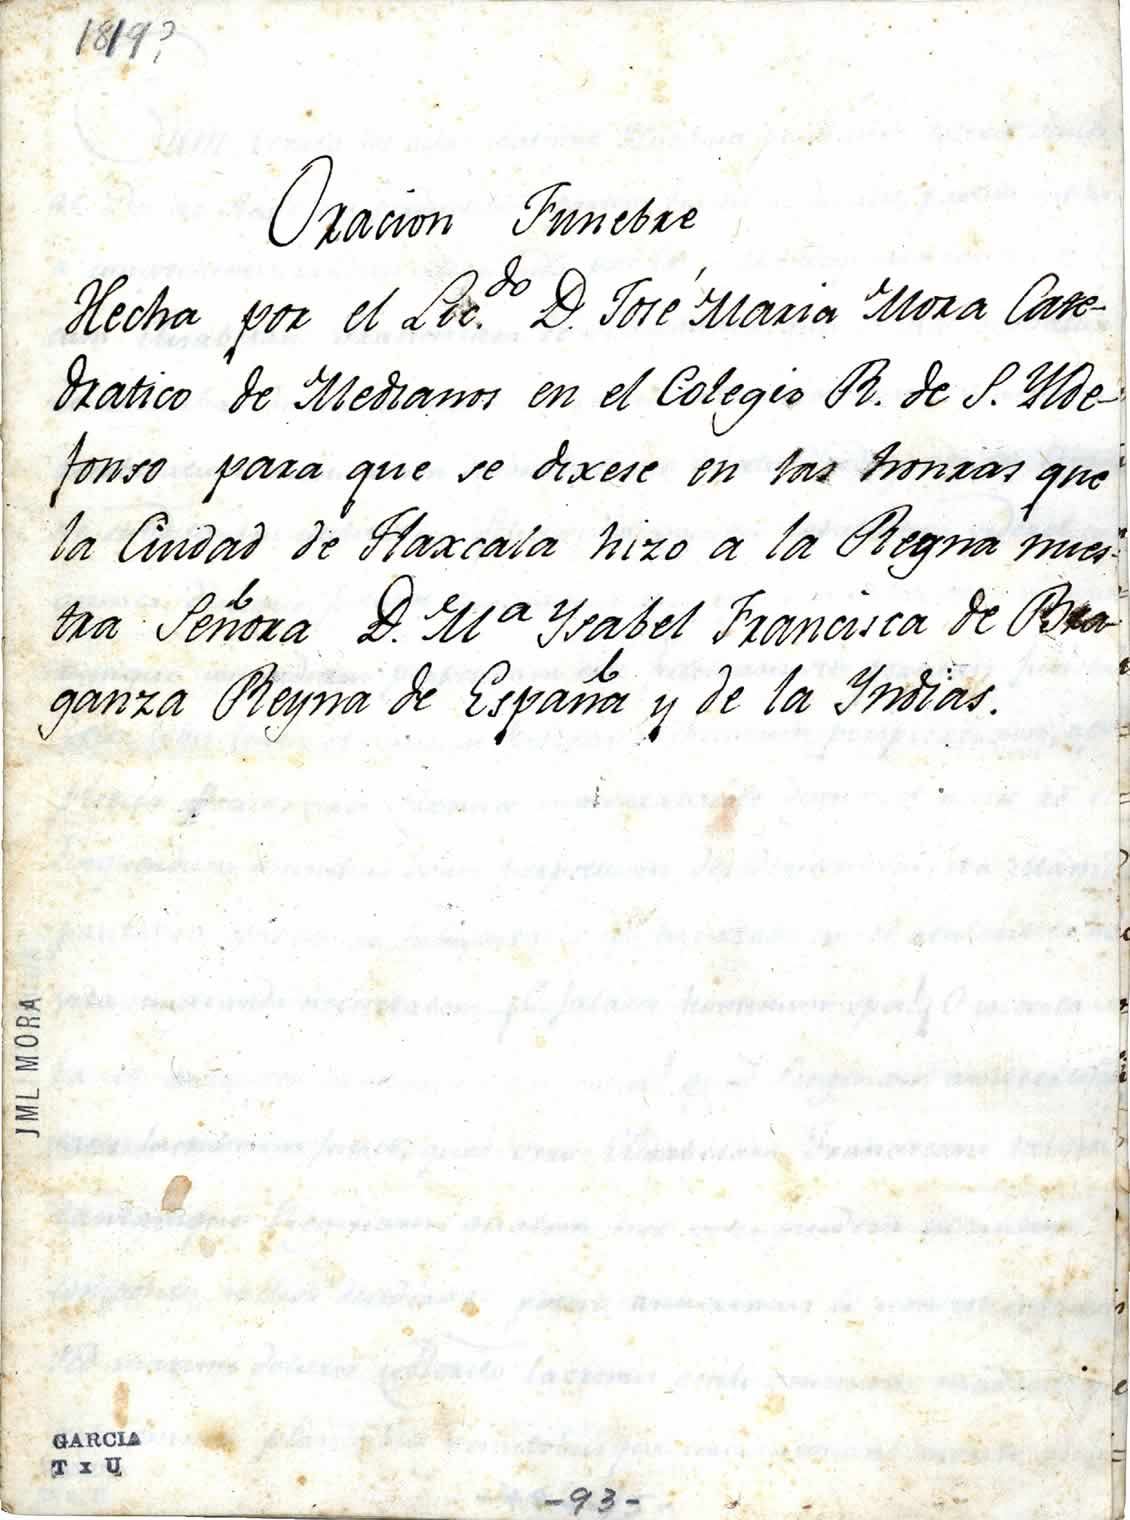 1819?
Oracion Funebre
Hecha por el Lic.do D. José Maria Mora Cate-
dratico de Medianos en el Colegio R. de S. Ylde-
fonso para que se dixese en las honras que
la Ciudad de Tlaxcala hizo a la Reyna nues-
tra Señora D. Ma Ysabel Francisca de Bra-
ganza Reyna de España y de la Yndias.
JML MORA
GARCIA
T x U
-93-